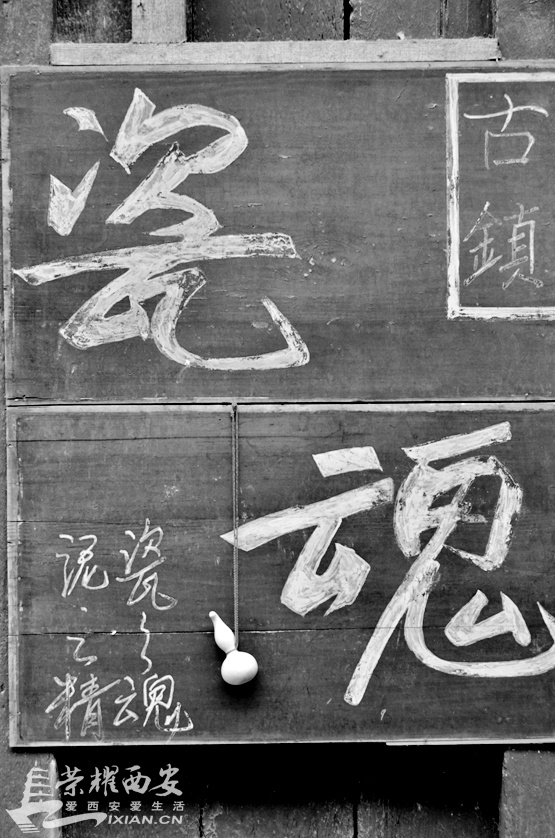 古鎮
瓷
魂
瓷之魂
泥之精
荣耀西安
爱西安爱生活
IXIAN.CN